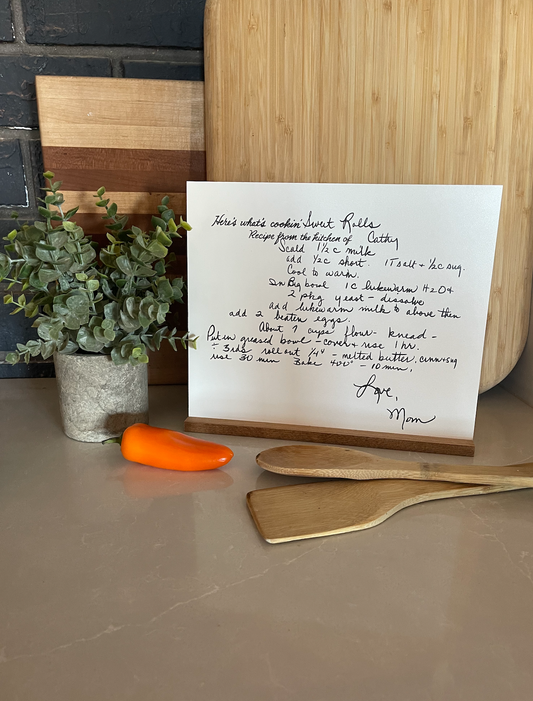 Here's what's cookin' Sweet Rolls
Recipe from the kitchen of Cathy
Scald 1 1/2 c milk
add 1/2 c short. 1T salt + 1/2 c sug.
Cool to warm.
In Big bowl 1 c lukewarm H2O +
2 pkg yeast - dissolve
add lukewarm milk to above then
add 2 beaten eggs.
About 7 cups flour - knead -
Put in greased bowl - cover & rise 1 hr.
÷ 3rds roll out 1/4" - melted butter, cinn + sug
rise 30 min Bake 400° - 10 min.
Love,
Mom